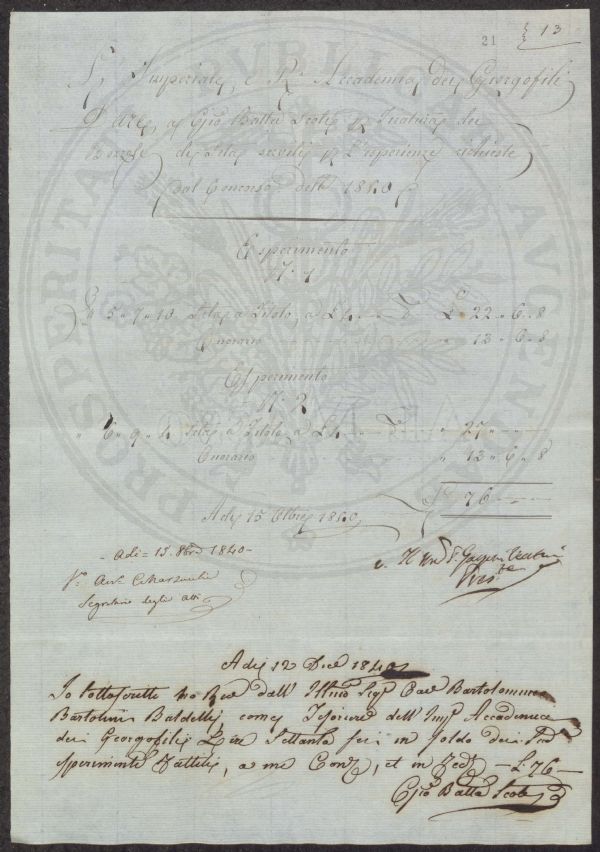 21
13
L' Imperiale, e Rle Accademia dei Georgofili
Dare, a Gio Batta Scoti p. Tratura dei
Bozzoli di Seta serviti p. l'esperienze richieste
dal Concorso dell' 1840
Esperimento
N. 1
5 " 7 " 10 Seta, a Titolo, a L 4 L. 22 " 6 " 8
Onorario 13 " 6 " 8
Esperimento
N. 2
" 6 " 9 " 4 Seta, a Titolo, a L 4 " 27
Onorario " 13 " 6 " 8
76
Adi 15 Ottbre 1840
Adi = 15. 8bre 1840 -
Vo. Ant. Marzucchi
Segretario degli Atti
Visto
Adi 12 Dice 1840
Io sottoscritto ho Rice dall' Illmo Sigr Cave Bartolommeo
Bartolini Baldelli, come Tesoriere dell' Imple Accademia
dei Georgofili Lire Settanta sei in Saldo dei Sudi
sperimenti fattili, a me Conti, et in fede - L. 76 -
Gio Batta Scoti
PROSPERITATI PUBLICAE AUGENDAE